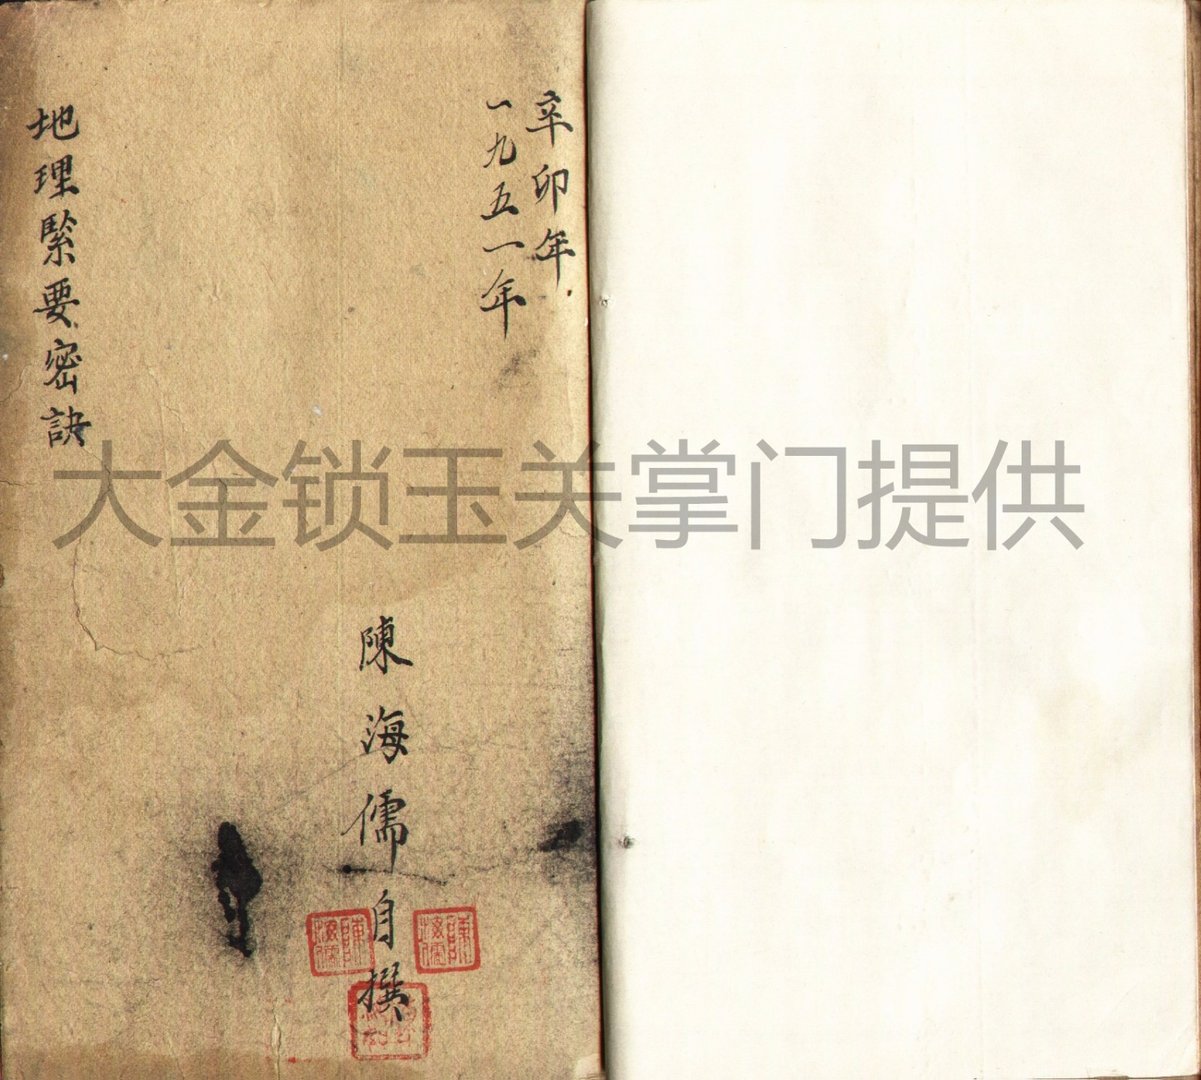 辛卯年
一九五一年
地理緊要密訣
陳海儒自撰
大金锁玉关掌门提供
陳海儒
陳海儒